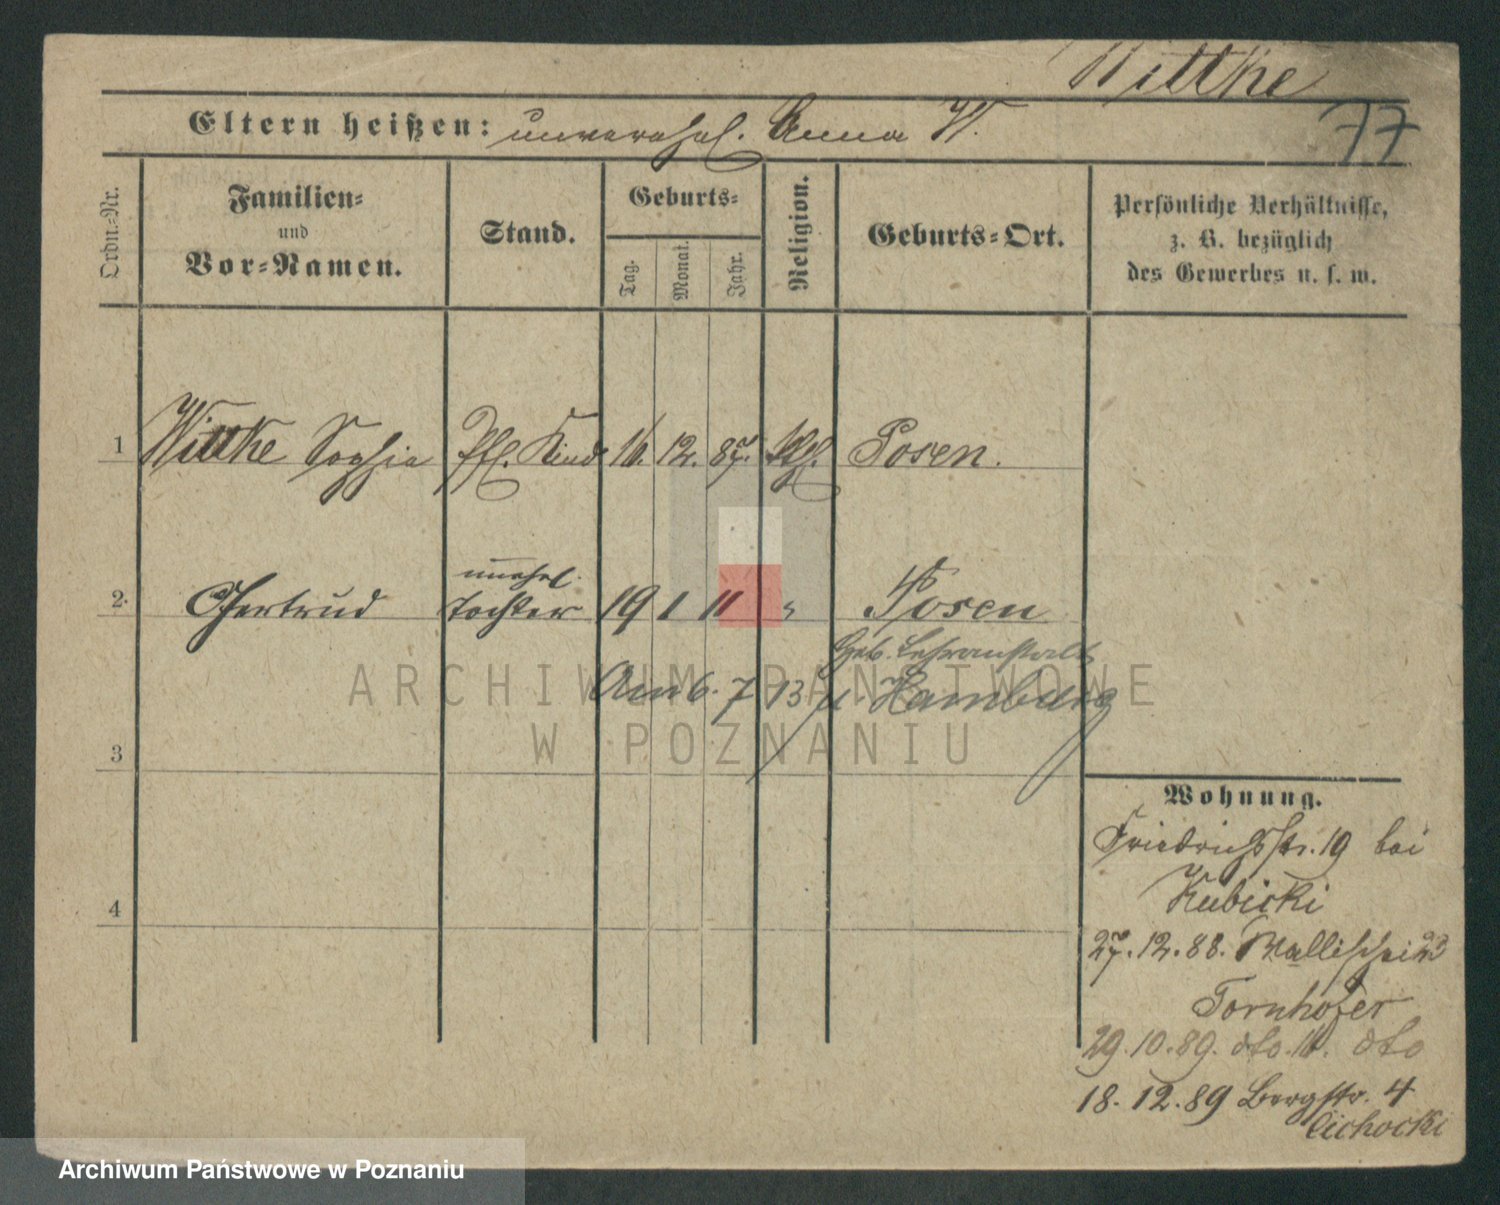 Wittke
77
Eltern heißen: unverehel. Anna W.
Ordn.-Nr.
Familien-
und
Vor-Namen.
Stand.
Geburts-
Tag.
Monat.
Jahr.
Religion.
Geburts-Ort.
Persönliche Verhältnisse,
z. B. bezüglich
des Gewerbes u. s. w.
1 Wittke Sophie Pfl. Kind 16. 12. 87. Posen.
2. Gertrud unehel. Tochter 19 1 11 " Posen
Geb. Lehranstalt
Am 6. 7 13 n. Hamburg
3
4
Wohnung.
Friedrichstr. 19 bei
Kubicki
27. 12. 88. Wallischei 23
Tornhofer
29. 10. 89. dto. 11. dto
18. 12. 89 Bergstr. 4
Cichocki
ARCHIWUM PAŃSTWOWE
W POZNANIU
Archiwum Państwowe w Poznaniu